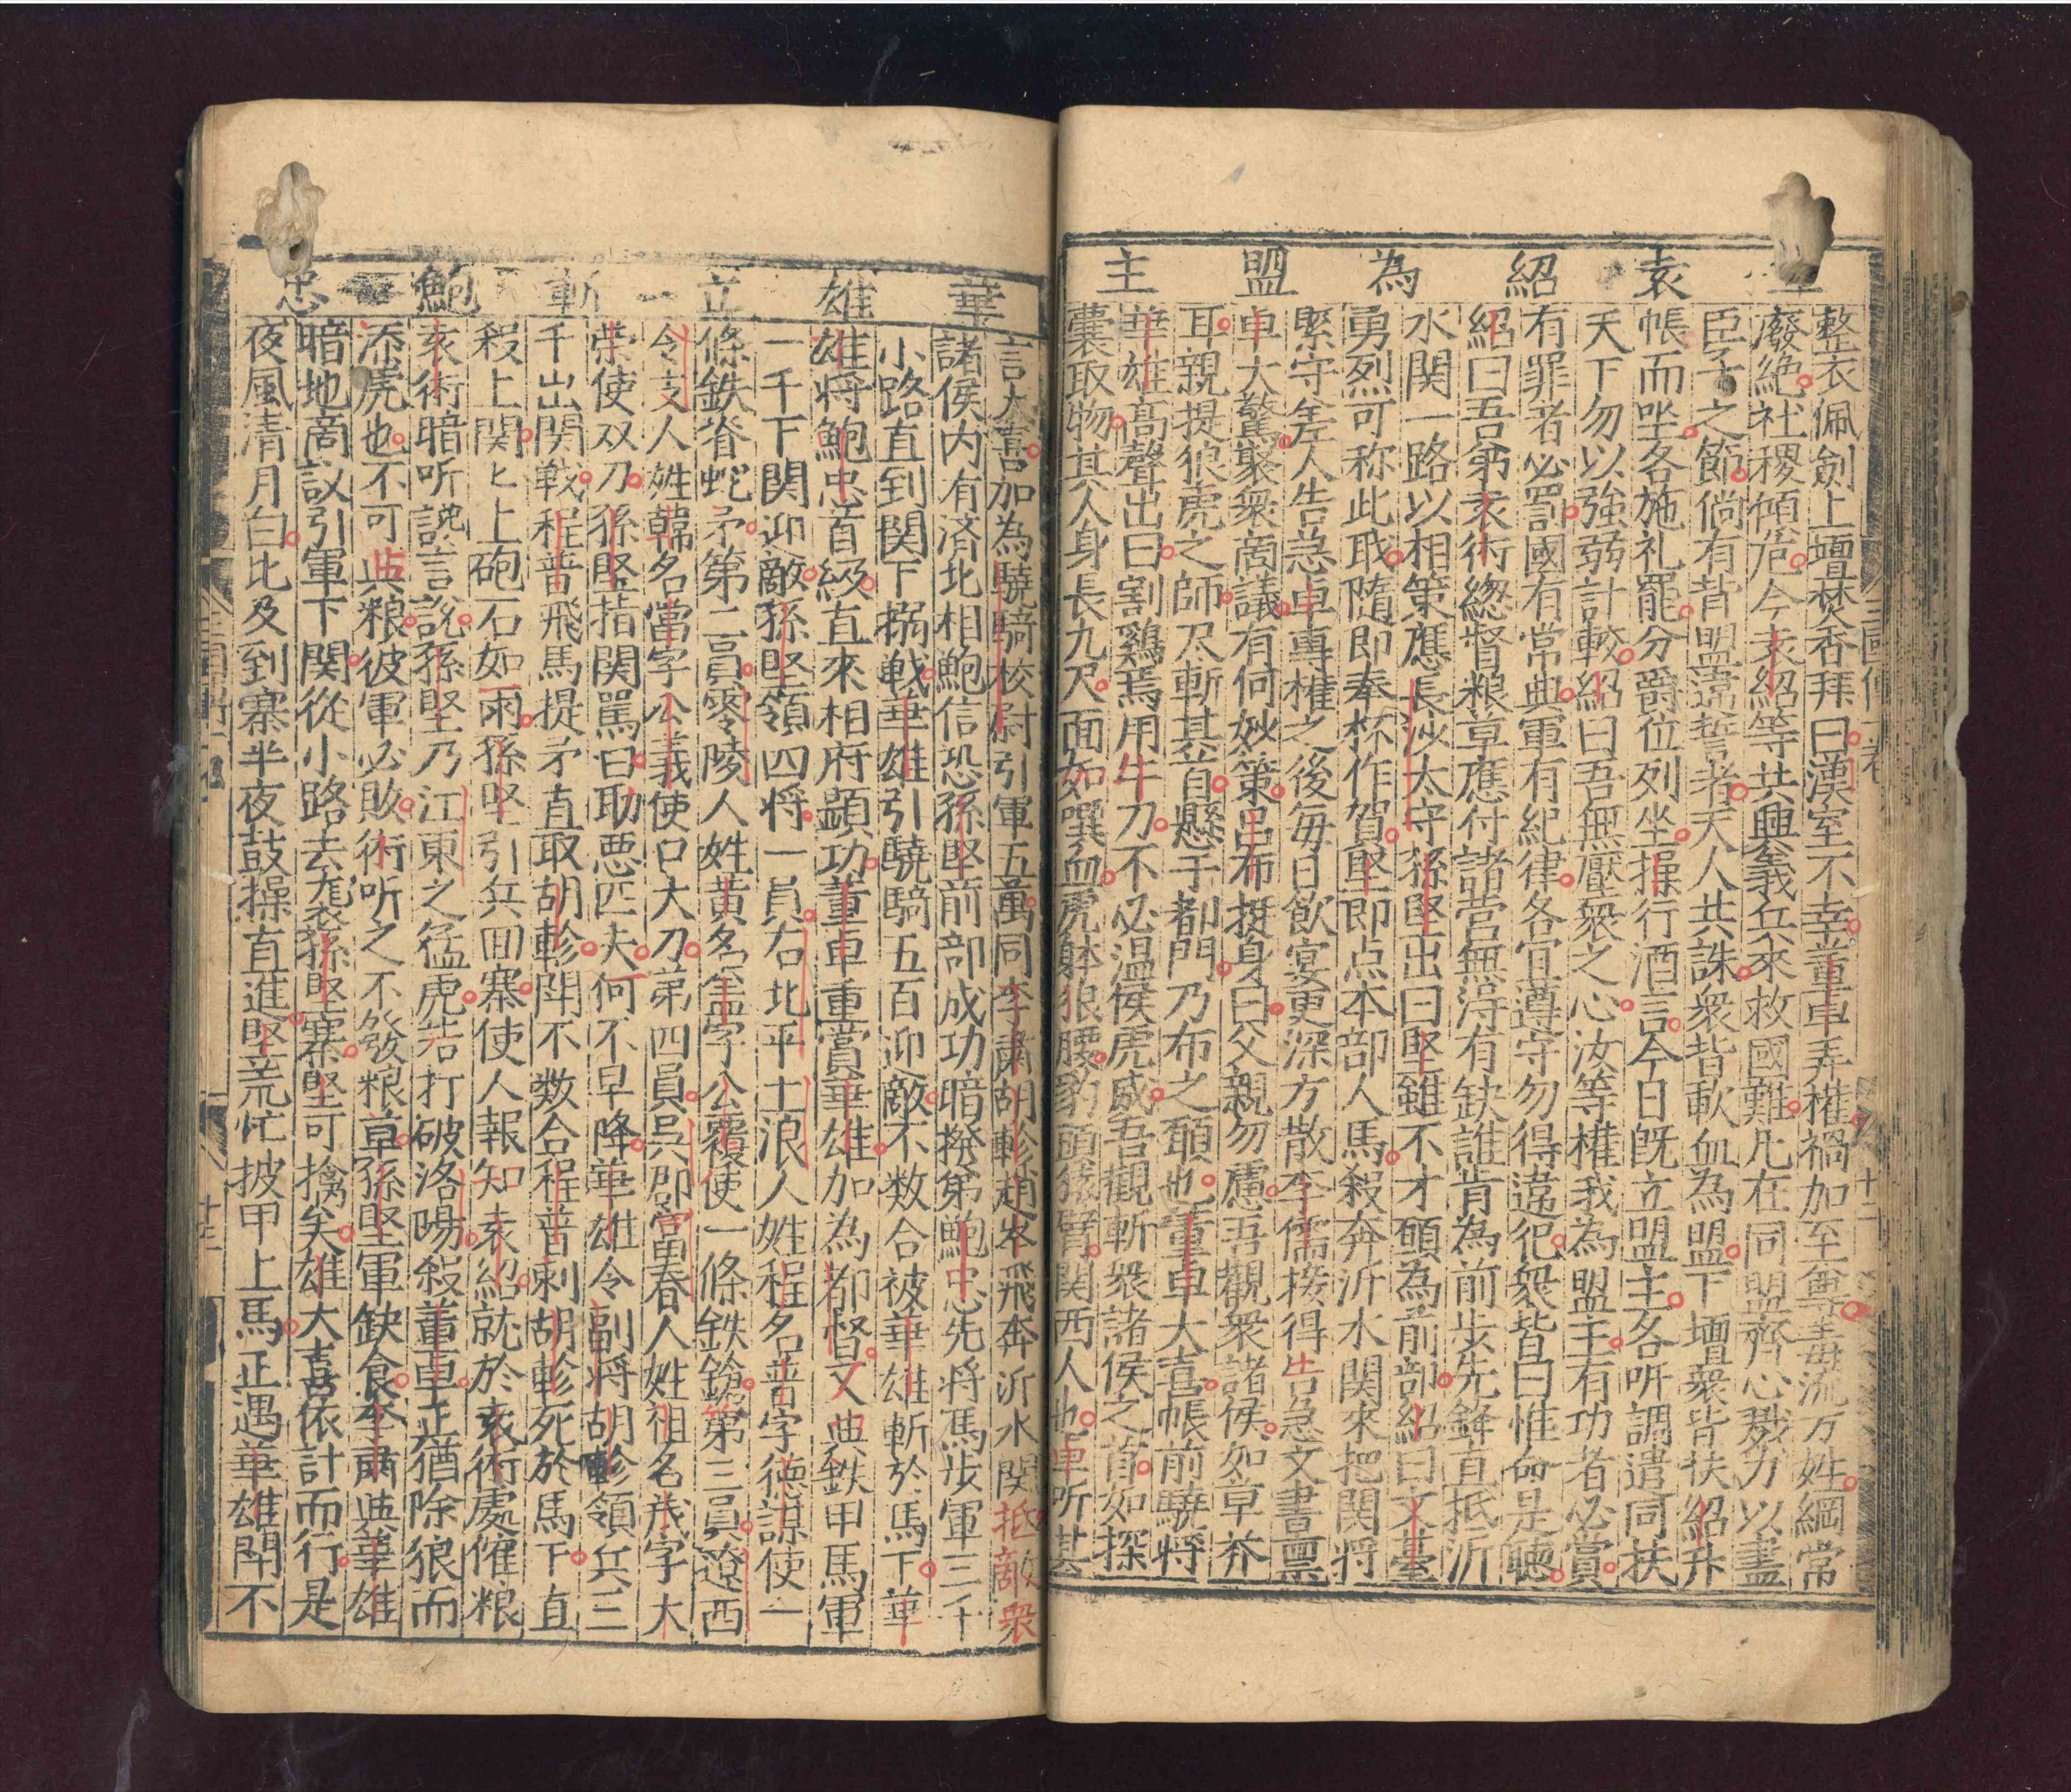 袁紹為盟主
整衣佩劍上壇焚香拜曰漢室不幸董卓弄權禍加至尊毒流万姓綱常
廢絕社稷傾危今袁紹等共興義兵來救國難凡在同盟齊心戮力以盡
臣子之節倘有背盟違誓者天人共誅衆皆歃血為盟下壇衆皆扶紹升
帳而坐各施礼罷分爵位列坐操行酒言今日既立盟主各听調遣同扶
天下勿以強弱計較紹曰吾無壓衆之心汝等權我為盟主有功者必賞
有罪者必罰國有常典軍有紀律各宜遵守勿得違犯衆皆曰惟命是聽
紹曰吾弟袁術総督粮草應付諸营無淂有缺誰肯為前步先鋒直抵沂
水関一路以相策應長沙太守孫堅出曰堅雖不才願為前部紹曰文臺
勇烈可称此职隨即奉杯作賀堅即点本部人馬殺奔沂水関來把関将
緊守差人告急卓專權之後每日飲宴更深方散李儒接得告急文書禀
卓大驚聚衆商議有何妙策呂布挺身曰父親勿慮吾觀衆諸侯如草芥
耳親提狼虎之師尽斬其首懸于都門乃布之願也董卓大喜帳前驍将
華雄高聲出曰割鷄焉用牛刀不必温侯虎威吾觀斬衆諸侯之首如探
囊取物其人身長九尺面如噀血虎躰狼腰豹頭猿臂関西人也卓听其
三國傳
十二
華雄立斬鮑忠
言大喜加為驍騎校尉引軍五萬同李肅胡軫趙岑飛奔沂水関抵敵衆
諸侯内有済北相鮑信恐孫堅前部成功暗撥弟鮑忠先将馬步軍三千
小路直到関下搦戦華雄引驍騎五百迎敵不数合被華雄斬於馬下華
雄将鮑忠首級直來相府顕功董卓重賞華雄加為都督又典鉄甲馬軍
一千下関迎敵孫堅領四将一員右北平土浪人姓程名普字德謀使一
條鉄脊蛇矛第二員零陵人姓黄名盖字公覆使一條鉄鎗第三員遼西
令支人姓韓名當字公義使口大刀弟四員吳郡富春人姓祖名茂字大
荣使双刀孫堅指関駡曰助悪匹夫何不早降華雄令副将胡軫領兵三
千出関戦程普飛馬提矛直取胡軫閗不数合程普刺胡軫死於馬下直
殺上関〻上砲石如雨孫堅引兵回寨使人報知袁紹就於袁術處催粮
袁術暗听讒言說孫堅乃江東之猛虎若打破洛陽殺董卓正猶除狼而
添虎也不可典粮彼軍必敗術听之不發粮草孫堅軍缺食李肅典華雄
暗地商议引軍下関從小路去襲孫堅寨堅可擒矣雄大喜依計而行是
夜風清月白比及到寨半夜鼓操直進堅荒忙披甲上馬正遇華雄閗不
十三